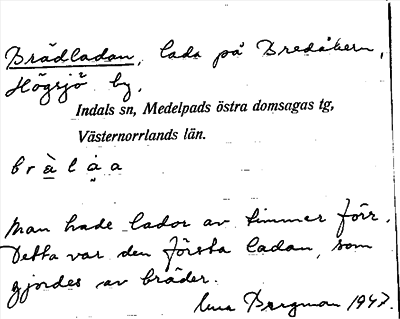 Brädladan, lada på Bredåkern,
Högsjö by.
Indals sn, Medelpads östra domsagas tg,
Västernorrlands län.
b r à l ȧ a
Man hade lador av timmer förr.
Detta var den första ladan, som
gjordes av bräder.
Bergman 1947.